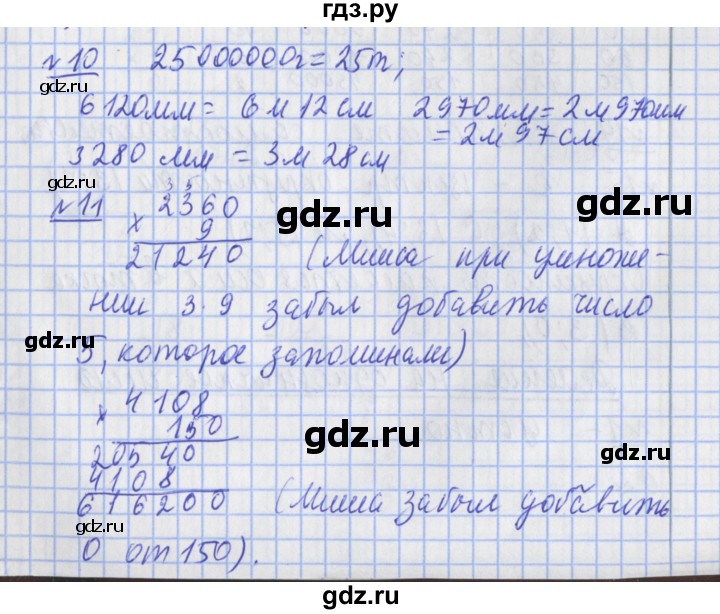 гдз.ру
№10 25000000г = 25т;
6120мм = 6м 12см 2970мм = 2м 970мм
= 2м 97см
3280 мм = 3м 28см
gdz.ru
3 5
№11 × 2360 gdz.ru
9
21240 (Миша при умноже-
нии 3·9 забыл добавить число
gdz.ru
5, которое запоминали)
× 4108
150 gdz.ru
20540
4108
616200 (Миша забыл добавить
0 от 150).
gdz.ru
gdz.ru